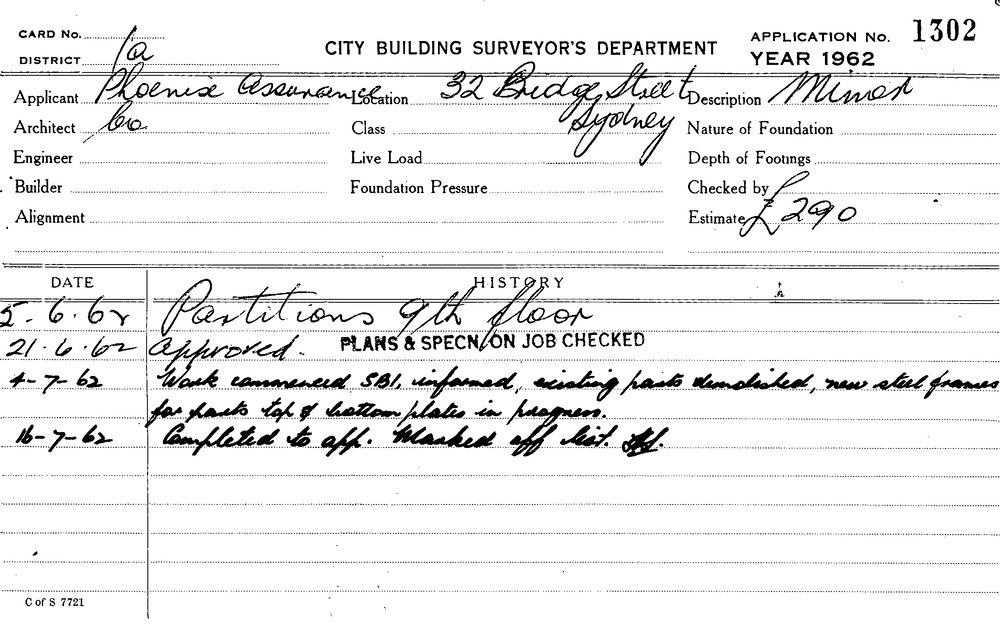 CARD No.
DISTRICT 1a
CITY BUILDING SURVEYOR'S DEPARTMENT
APPLICATION No. 1302
YEAR 1962
Applicant Phoenix Assurance Location 32 Bridge Street Description Minor
Architect Co. Class Sydney Nature of Foundation
Engineer Live Load Depth of Footings
Builder Foundation Pressure Checked by
Alignment Estimate £290
DATE HISTORY
5.6.62 Partitions 9th floor
21.6.62 approved. PLANS & SPECN, ON JOB CHECKED
4-7-62 Work commenced SBI, informed, existing parts demolished, new steel frames
for parts top & bottom plates in progress.
16-7-62 Completed to app. Marked off list.
C of S 7721